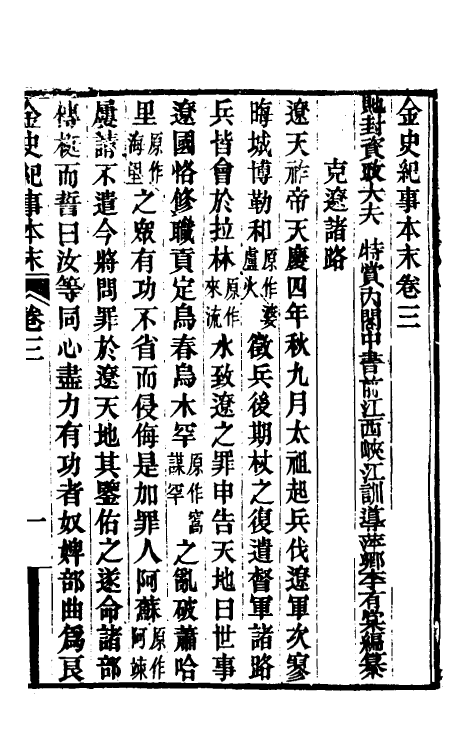 金史紀事本末卷三
貤封資政大夫 特賞內閣中書前江西峽江訓導萍鄉李有棠編纂
克遼諸路
遼天祚帝天慶四年秋九月太祖起兵伐遼軍次寥
晦城博勒和原作婆盧火徵兵後期杖之復遣督軍諸路
兵皆會於拉林原作來流水致遼之罪申告天地曰世事
遼國恪修職貢定烏春烏木罕原作窩謀罕之亂破蕭哈
里原作海里之眾有功不省而侵侮是加罪人阿蘇原作阿竦
屢請不遣今將問罪於遼天地其鑒佑之遂命諸部
傳梃而誓曰汝等同心盡力有功者奴婢部曲為良
金史紀事本末 卷三 一